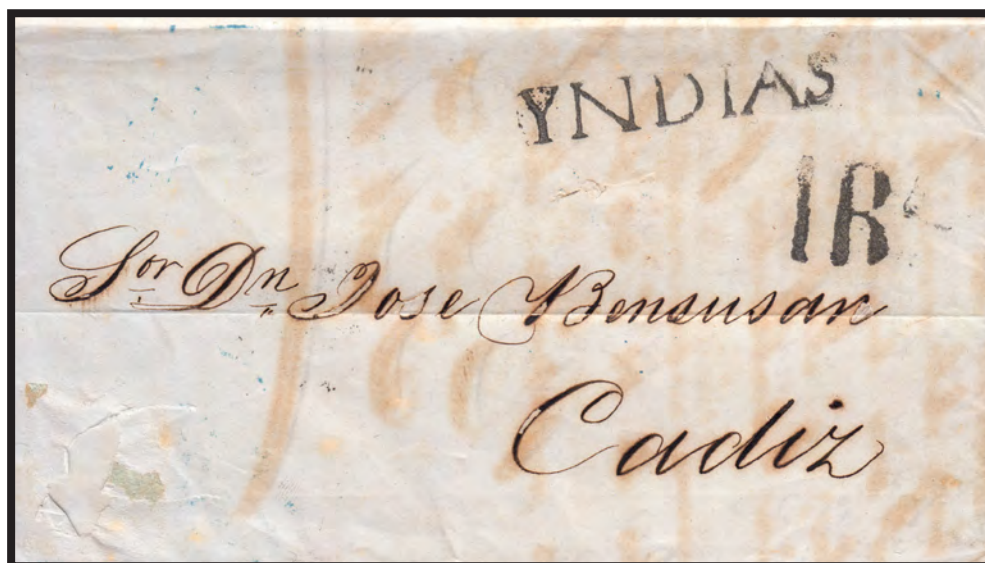 YNDIAS
1R
Sor Dn Jose Bensusan
Cadiz